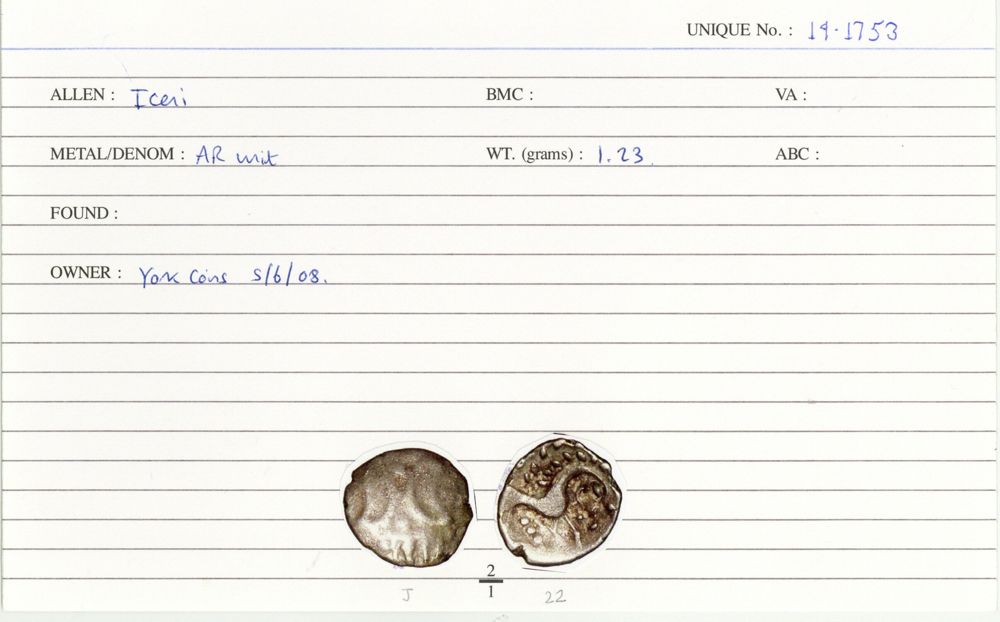 UNIQUE No. : 19.1753
ALLEN : Iceni BMC : VA :
METAL/DENOM : AR unit WT. (grams) : 1.23 ABC :
FOUND :
OWNER : York Coins 5/6/08.
2
1
J 22